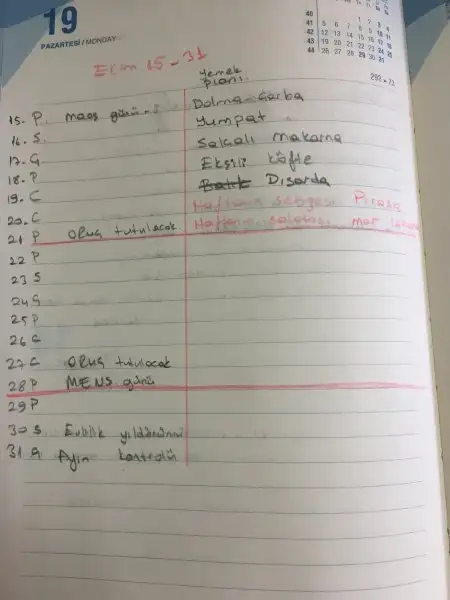 19
PAZARTESİ / MONDAY
40 1 2 3 4
41 5 6 7 8 9 10 11
42 12 13 14 15 16 17 18
43 19 20 21 22 23 24 25
44 26 27 28 29 30 31
292 • 73
Ekim 15 - 31
Yemek
planı
15. P. maaş günü Dolma - Çorba
16. S. Yumpat
17. Ç Salçalı makarna
18. P Ekşili köfte
19. C Balık Dışarda
20. C Haftanın sebzesi Pırasa
21 P ORUÇ tutulacak Haftanın salatası mor lahana
22 P
23 S
24 Ç
25 P
26 C
27 C ORUÇ tutulacak
28 P MENS günü
29 P
30 S Evlilik yıldönümü
31 Ç Ayın kontrolü